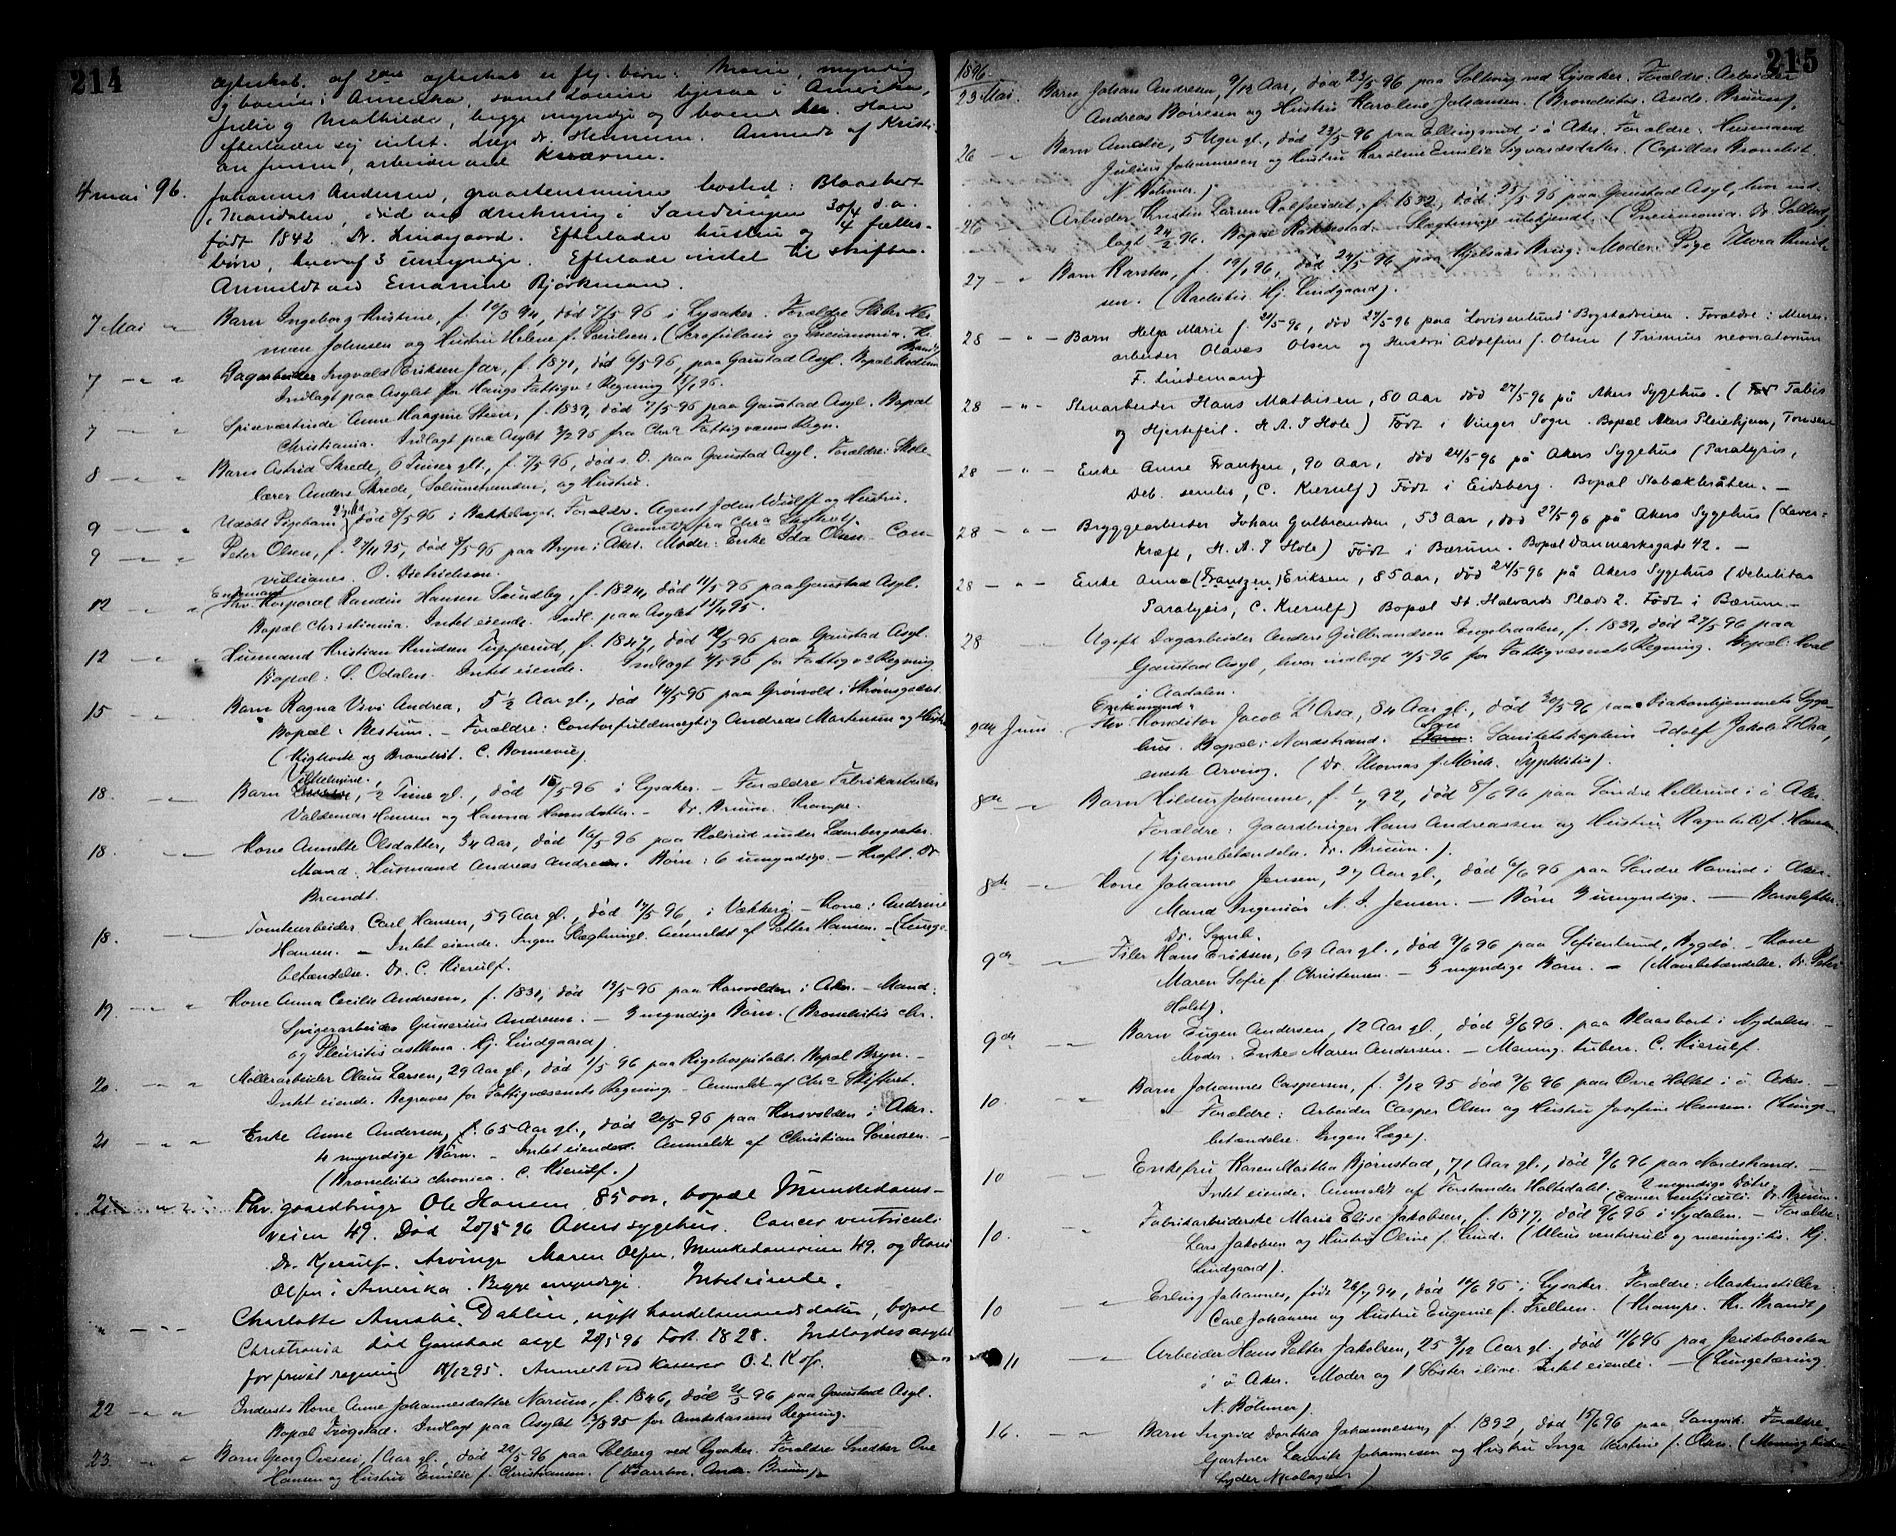 214
ægteskab. af 2det ægteskab er flg. børn: Marie, myndig
g boende i Amerika, samt Louise ligesaa i Amerika,
Julie g Mathilde, begge myndige og boende her. Han
efterlader sig intet. Læge Dr. Hennum. Anmeldt af Kristi-
an Jensen, arbeider ved Kværner.
4 mai 96. Johannes Andersen, graastensminør bosted: Blaasbort
i Maridalen, død ved drukning i Sandungen 30/4 d.a.
født 1842. Dr. Lindgaard. Efterlader hustru og 4 fælles-
børn, hvoraf 3 umyndige. Efterlod intet til skifte.
Anmeldt ved Emanuel Bjørkman.
7 Mai " Barn Ingeborg Kristine, f. 10/3 94, død 7/5 96 i Lysaker. Forældre Sliber Her-
man Johnsen og Hustru Helene f. Paulsen. (Scrofulosis og Pneumonia. Kr. Brandt)
7 " " Dagarbeider Ingvald Eriksen Jar, f. 1871, død 6/5 96, paa Gaustad Asyl. Bopæl
Indlagt paa Asylet for Haugs Fattigv. Regning 15/1 96.
7 " " Spiseværtinde Anne Kaagine Steen, f. 1839, død 7/5-96 paa Gaustad Asyl. Bopæl
Christiania. Indlagt paa Asylet 3/2 96 fra Chra Fattigvæsens Regn.
8 " " Barn Astrid Skrede, 6 Timer gl., f. 7/5 96, død s. D. paa Gaustad Asyl. Forældre: Skole-
lærer Anders Skrede, og Hustru.
9 " " Udøbt Pigebarn død 8/5 96 i Bækkelaget. Forældre. Agent John Wulff og Hustru.
(Anmeldt fra Chra Skifteret)
9 " " Peter Olsen, f. 27/11 95, død 8/5 96 paa Bryn i Aker. Moder: Enke Ida Olsen. Con-
vulsiones. O. Dietrichson.
12 " " Enkemand Fhv. Korporal Randin Hansen Sundby, f. 1824, død 11/5-96 paa Gaustad Asyl.
Bopæl Christiania. Intet eiende. Indl. paa Asylet 11/4 95.
12 " " Husmand Kristian Knudsen Tupperud, f. 1847, død 10/5 96 paa Gaustad Asyl.
Bopæl: S. Odalen. Intet eiende. Indlagt 4/5 96 for Fattigv. Regning
15 " " Barn Ragna Vivi Andrea, 5 1/2 Aar gl., død 14/5 96 paa Grønvold i
Bopæl: Restum. - Forældre: Contorfuldmægtig Andreas Martensen og Hustru
(Kighoste og Bronchit. C. Bonnevie)
18. " Barn Vilhelmine, 1/2 Time gl., død 15/5 96 i Lysaker. - Forældre Fabrikarbeider
Valdemar Hansen og Hanna Hansdatter. - Dr. Bruun. Krampe.
18. " Kone Annette Olsdatter, 34 Aar, død 16/5 96 paa Kolsrud under Lambergsæter.
Mand. Husmand Andreas Andresen. Børn: 6 umyndige. - Kræft. Dr
Brandt.
18. " Tomtearbeider Carl Hansen, 59 Aar gl., død 17/5 96, i Vækkerø - Kone: Andrine
Hansen. - Intet eiende. Ingen Slægtninge. Anmeldt af Petter Hansen. - (Lunge-
betændelse. Dr. C. Kierulf.
19. " " Kone Anna Cecilie Andresen, f. 1831, død 19/5 96 paa Korsvolden i Aker. - Mand:
Spigerarbeider Gunerius Andresen. - 3 myndige Børn. (Bronchitis chr.
og Pleuritis asthma. Hj. Lindgaard)
20. " " Møllerarbeider Olaus Larsen, 29 Aar gl., død 1/5 96 paa Rigshospitalet. Bopæl Bryn. -
Intet eiende. Begraves for Fattigvæsenets Regning. - Anmeldt af Chra Skifteret.
21 " " Enke Anne Andersen, f. 65 Aar gl., død 20/5-96 paa Korsvolden i Aker.
4 myndige Børn. - Intet eiende. Anmeldt af Christian Sørensen. -
(Bronchitis chronica. C. Kierulf.)
21 " " Fhv. gaardbruger Ole Hansen 85 aar, bopæl Munkedams-
veien 49. Død 20/5 96 Akers sygehus. Cancer ventriculi
Dr. Kjerulf. Arvinge Maren Olsen, Munkedamsveien 49. og Hans
Olsen i Amerika. Begge myndige. Intet eiende.
" " Charlotte Amalie Dahlin, ugift handelsmands datter, bopæl
Christiania død Gaustad asyl 20/5 96 født 1828. Indlagdes asylet
for privat regning 18/12 95. Anmeldt ved kasserer O. L. Kofr.
22 " " Inderste Kone Anne Johannesdatter Narum, f. 1846, død 21/5 96 paa Gaustad Asyl.
Bopæl Trøgstad. Indlagt paa Asylet 13/8 95 for Amtskassens Regning.
23. " " Barn Georg Ovesen, 1 Aar gl., død 22/5 96 paa Solberg ved Lysaker. Forældre Snedker Ove
Hansen og Hustru Emilie f. Christiansen. (Diarrhoe. Andr. Bruun)
215
1896
23 Mai. Barn Johan Andresen, 9/12 Aar, død 23/5-96 paa Solberg ved Lysaker. Forældre. Arbeider
Andreas Børresen og Hustru Karoline Johansen. (Bronchitis. Andr. Bruun).
26 " Barn Amalie, 5 Uger gl., død 23/5 96 paa Ellingsrud i ø. Aker. Forældre: Husmand
Julius Johannesen og Hustru Karoline Emilie Sigvardsdatter. (Capillær Bronchit.
N. Bohmer.)
26 " Arbeider Kristen Larsen Rolfseidet, f. 1832, død. 25/5 96 paa Gaustad Asyl, hvor ind-
lagt 24/2 96. Bopæl Rakkestad. Slægtninge ubekjendt. (Pneumonia. Dr. Solberg)
27 " Barn Karsten, f. 19/1 96, død 24/5-96 paa Hjelsaas Brug. Moder: Pige Thora Knud-
sen. (Rachitis. Hj. Lindgaard).
28 " Barn Helga Marie f. 21/5 96, død 27/5 96 paa "Lovisenlund" Bogstadveien. Forældre: Murer-
arbeider Olaves Olsen og Hustru Adolfine f. Olsen (Trismus neonatorum
F. Lindeman)
28 " Stenarbeider Hans Mathisen, 80 Aar død 27/5 96 på Akers Sygehus. (Tabis
og Hjertefeil. H. A. J Hole) Født i Vinger Sogn. Bopæl Akers Pleiehjem, Tonsen
28 " Enke Anne Frantzen, 90 Aar, død 24/5 96 på Akers Sygehus (Paralysis,
Deb. senilis, C. Kierulf) Født i Eidsberg. Bopæl Stabækbråten. -
28 " Bryggearbeider Johan Gulbrandsen, 53 Aar, død 27/5 96 på Akers Sygehus (Lever-
kræft, H. A. J Hole) Født i Bærum. Bopæl Danmarksgade 42. -
28 " Enke Anne (Frantzen) Eriksen, 85 Aar, død 24/5 96 på Akers Sygehus (Debilitas
Paralysis, C. Kierulf) Bopæl St. Halvards Plads 2. Født i Bærum. -
28 " Ugift Dagarbeider Anders Gulbrandsen Engebraaten, f. 1839, død 27/5 96 paa
Gaustad Asyl, hvor indlagt 4/5 96 for Fattigvæsenets Regning. Bopæl: Hval
i Aadalen.
2den Juni. Enkemand, Fhv. Konditor Jacob L'Orsa, 84 Aar gl., død 30/5 96 paa Diakonhjemmets Syge-
hus. Bopæl: Nordstrand. Søn: Sanitetskaptein Adolf Jakob L'Orsa,
eneste Arving. (Dr. Thomas f. Mørch. Typhlitis).
8de " Barn Hildur Johanne, f. 1/7 92, død 8/6 96 paa Søndre Hellerud i ø. Aker.
Forældre: Gaardbruger Hans Andreassen og Hustru Ragnhild f. Hansen.
(Hjernebetændelse. Dr. Bruun.)
8de " Kone Johanne Jensen, 27 Aar gl., død 6/6 96 paa Søndre Hovind i Aker.
Mand Ingeniør N. J. Jensen. - Børn 3 umyndige. - Barselfeber.
Dr. Samb.
9de " Filer Hans Eriksen, 69 Aar gl., død 9/6 96 paa Sofienlund, Bygdø. - Kone
Maren Sofie f. Christensen. - 3 myndige Børn. - (Mavebetændelse. Dr. Peter
Holst).
9de " Barn Eugen Andersen, 12 Aar gl., død 8/6 96. paa Blaasbort i Nydalen -
Moder. Enke Maren Andersen. - Mening. tuberc. C. Kierulf.
10. " Barn Johannes Caspersen, f. 3/12 95 død 9/6 96 paa Øvre Holtet i ø. Aker. -
Forældre: Arbeider Casper Olsen og Hustru Josefine Hansen. (Lunge-
betændelse. Ingen Læge).
10 " Enkefru Karen Martha Bjørnstad, 71 Aar gl., død 9/6 96 paa Nordstrand. -
Intet eiende. Anmeldt af Forstander Holtedahl. 2 myndige Døtre. (Cancer ventriculi. Dr. Bruun.
10. " Fabrikarbeiderske Maria Elise Jakobsen, f. 1877, død 9/6 96 i Nydalen. - Forældre:
Lars Jakobsen og Hustru Oline f. Lund. (Ulcus ventriculi og meningitis. Hj.
Lindgaard).
10 " Erling Johannes, født 26/7 94, død 10/6 96 i Lysaker. Forældre: Maskinstiller
Carl Johansen og Hustru Eugenie f. Frellsen. (Krampe. Kr. Brandt)
11 " Arbeider Hans Petter Jakobsen, 25 3/12 Aar gl., død 11/6 96 paa Jerikobraaten
i ø. Aker. Moder og 1 Søster ilive. Intet eiende. - (Lungetæring
N. Bohmer)
16. " Barn Ingrid Dorthea Johannesen, f. 1892, død 15/6 96 paa Langvik. Forældre
Gartner Lauritz Johannesen og Hustru Inga Kirstine f. Olsen. (Mening.
Lyder Nicolaysen)